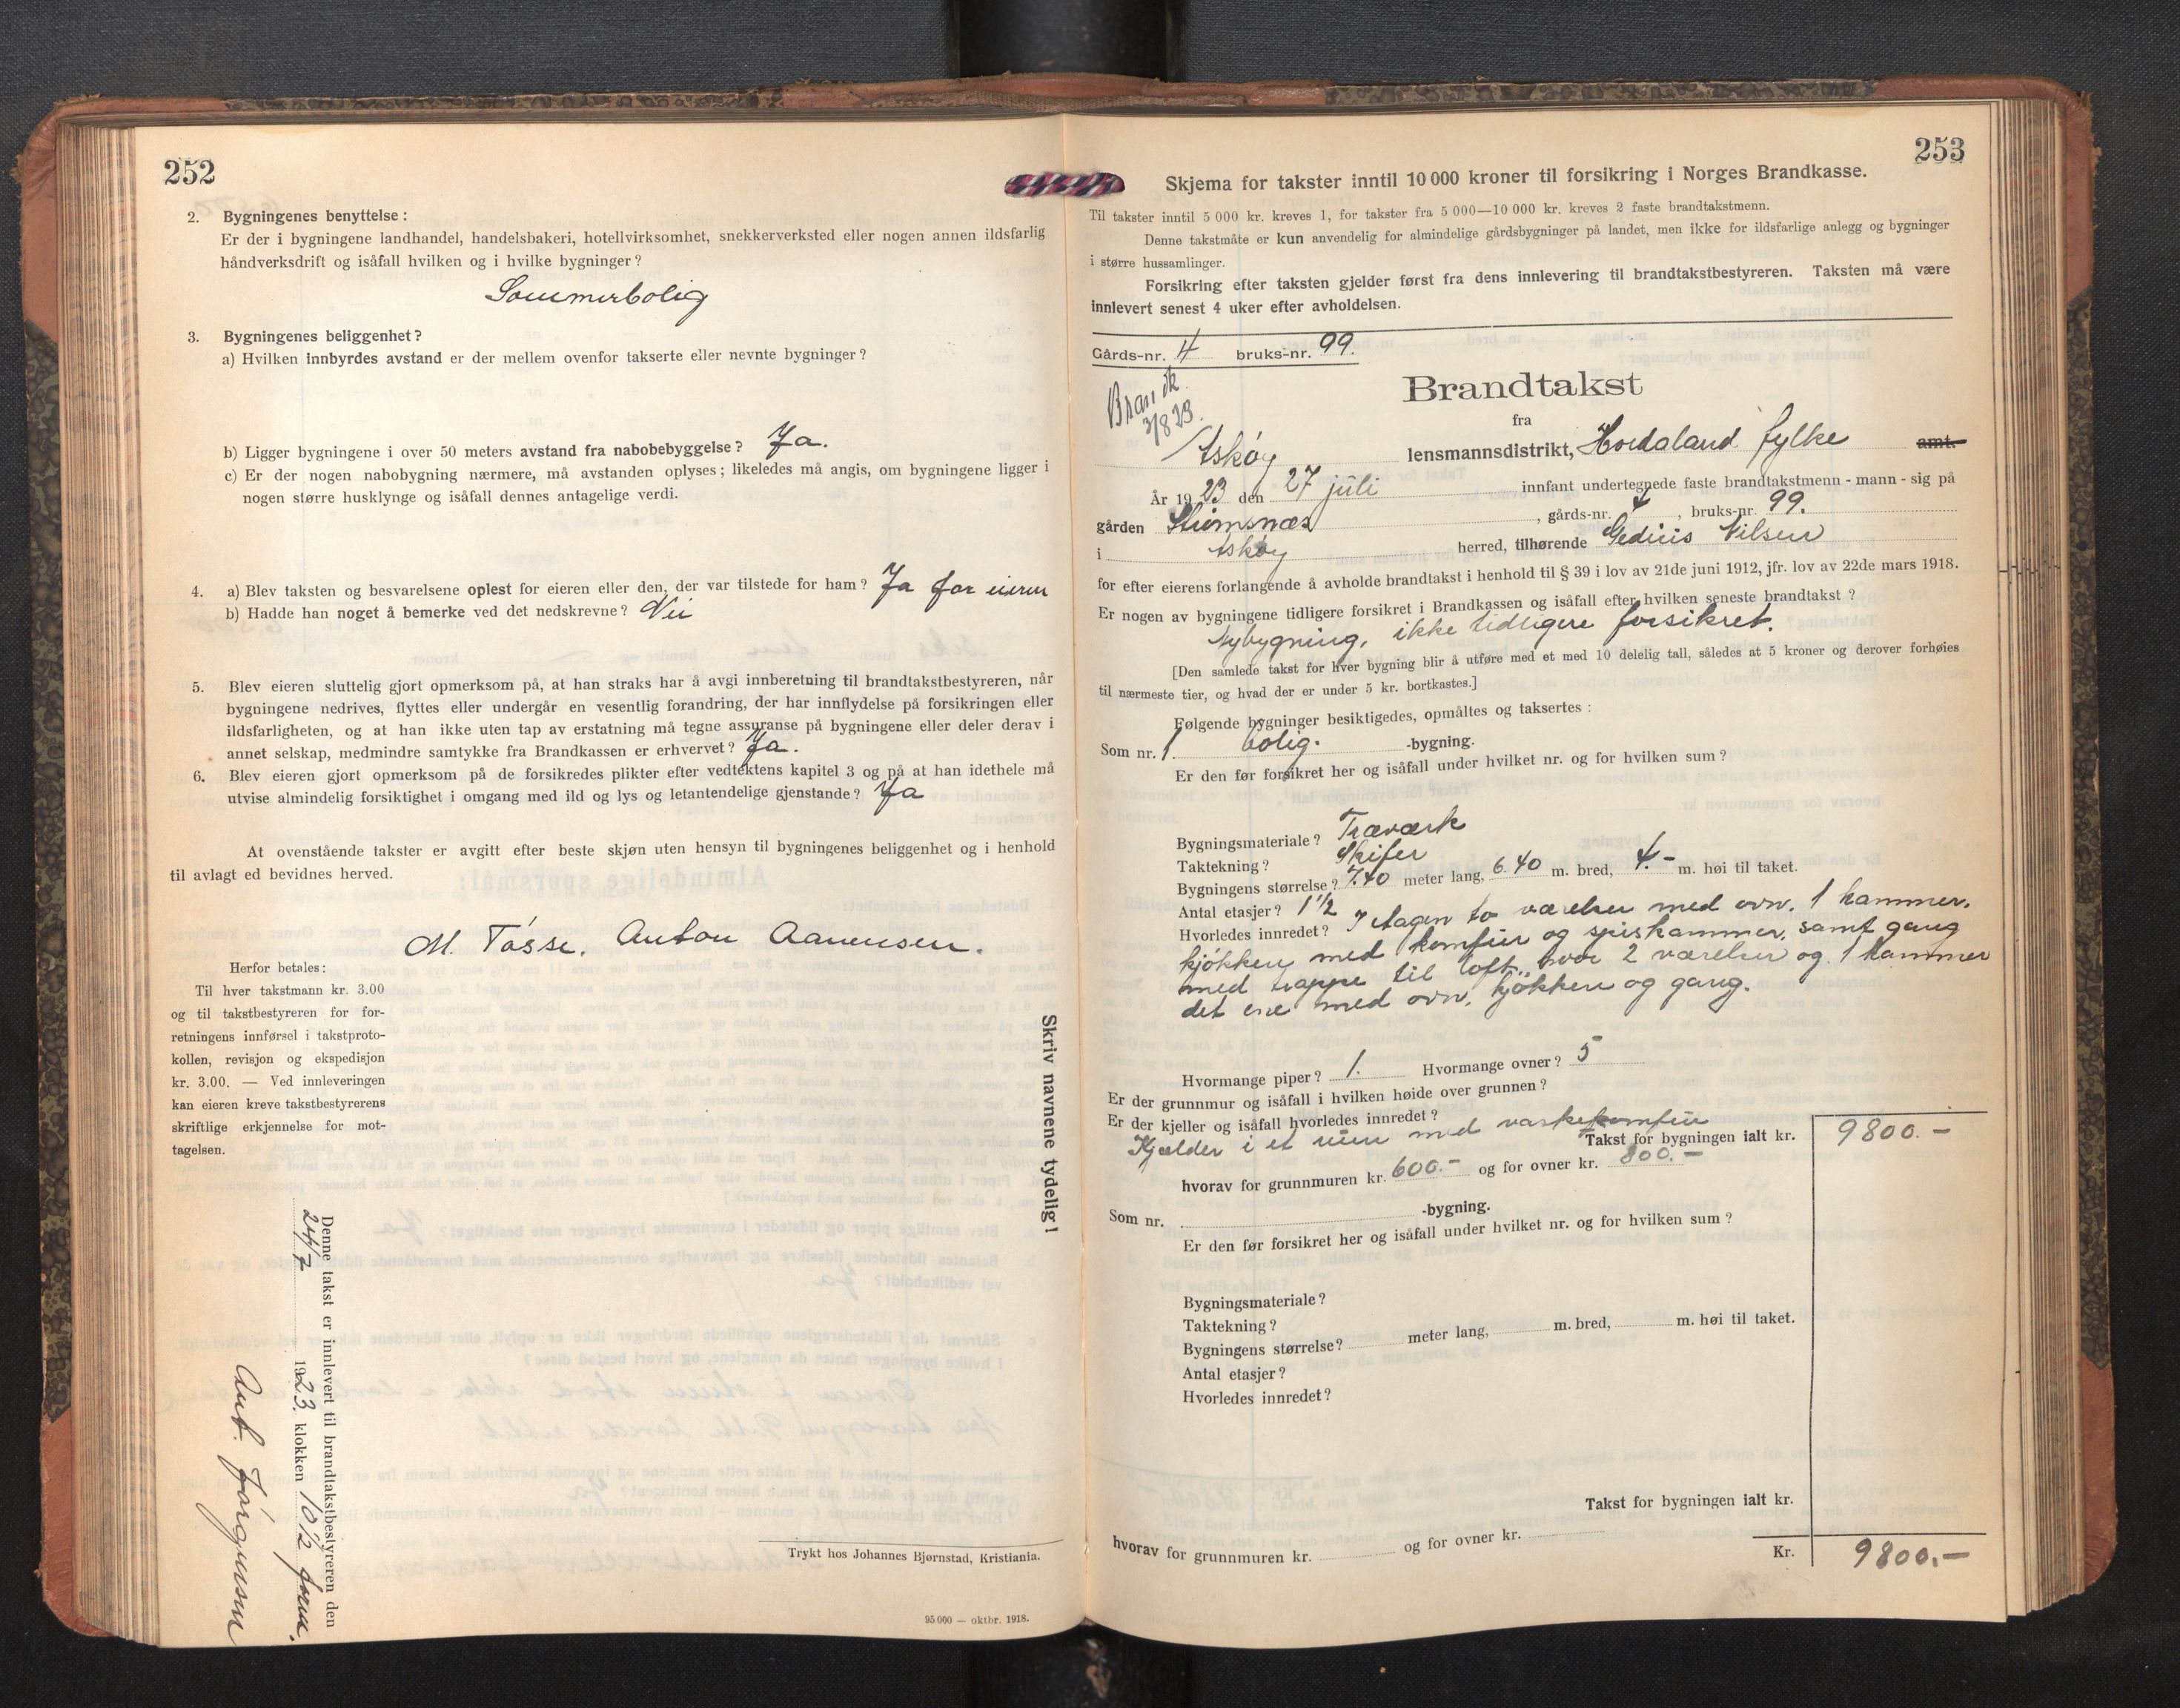 252
2. Bygningenes benyttelse:
Er der i bygningene landhandel, handelsbakeri, hotellvirksomhet, snekkerverksted eller nogen annen ildsfarlig
håndverksdrift og isåfall hvilken og i hvilke bygninger?
Sommerbolig
3. Bygningenes beliggenhet?
a) Hvilken innbyrdes avstand er der mellem ovenfor takserte eller nevnte bygninger?
b) Ligger bygningene i over 50 meters avstand fra nabobebyggelse? Ja.
c) Er der nogen nabobygning nærmere, må avstanden oplyses; likeledes må angis, om bygningene ligger i
nogen større husklynge og isåfall dennes antagelige verdi.
4. a) Blev taksten og besvarelsene oplest for eieren eller den, der var tilstede for ham? Ja for eieren
b) Hadde han noget å bemerke ved det nedskrevne? Nei
5. Blev eieren sluttelig gjort opmerksom på, at han straks har å avgi innberetning til brandtakstbestyreren, når
bygningene nedrives, flyttes eller undergår en vesentlig forandring, der har innflydelse på forsikringen eller
ildsfarligheten, og at han ikke uten tap av erstatning må tegne assuranse på bygningene eller deler derav i
annet selskap, medmindre samtykke fra Brandkassen er erhvervet? Ja.
6. Blev eieren gjort opmerksom på de forsikredes plikter efter vedtektens kapitel 3 og på at han idethele må
utvise almindelig forsiktighet i omgang med ild og lys og letantendelige gjenstande? Ja
At ovenstående takster er avgitt efter beste skjøn uten hensyn til bygningenes beliggenhet og i henhold
til avlagt ed bevidnes herved.
M. Tøsse. Anton Aanensen.
Herfor betales:
Til hver takstmann kr. 3.00
og til takstbestyreren for for-
retningens innførsel i takstproto-
kollen, revisjon og ekspedisjon
kr. 3.00. — Ved innleveringen
kan eieren kreve takstbestyrerens
skriftlige erkjennelse for mot-
tagelsen.
Skriv navnene tydelig!
Denne takst er innlevert til brandtakstbestyreren den
24/7 1923. klokken 10½ form.
Ant. Jørgensen
Trykt hos Johannes Bjørnstad, Kristiania.
95 000 — oktbr. 1918.
253
Skjema for takster inntil 10 000 kroner til forsikring i Norges Brandkasse.
Til takster inntil 5 000 kr. kreves 1, for takster fra 5 000—10 000 kr. kreves 2 faste brandtakstmenn.
Denne takstmåte er kun anvendelig for almindelige gårdsbygninger på landet, men ikke for ildsfarlige anlegg og bygninger
i større hussamlinger.
Forsikring efter taksten gjelder først fra dens innlevering til brandtakstbestyreren. Taksten må være
innlevert senest 4 uker efter avholdelsen.
Gårds-nr. 4 bruks-nr. 99.
3/8 23.
Brandtakst
fra
Askøy lensmannsdistrikt, Hordaland fylke amt.
År 1923 den 27 juli innfant undertegnede faste brandtakstmenn - mann - sig på
gården Strømsnæs, gårds-nr. 4, bruks-nr. 99.
i Askøy herred, tilhørende Gedius Nilsen
for efter eierens forlangende å avholde brandtakst i henhold til § 39 i lov av 21de juni 1912, jfr. lov av 22de mars 1918.
Er nogen av bygningene tidligere forsikret i Brandkassen og isåfall efter hvilken seneste brandtakst?
Nybygning, ikke tidligere forsikret.
[Den samlede takst for hver bygning blir å utføre med et med 10 delelig tall, således at 5 kroner og derover forhøies
til nærmeste tier, og hvad der er under 5 kr. bortkastes.]
Følgende bygninger besiktigedes, opmåltes og taksertes:
Som nr. 1 bolig. -bygning.
Er den før forsikret her og isåfall under hvilket nr. og for hvilken sum?
Bygningsmateriale? Træværk
Taktekning? Skifer
Bygningens størrelse? 7.40 meter lang, 6.40 m. bred, 4.- m. høi til taket.
Antal etasjer? 1½
Hvorledes innredet? I etagen to værelser med ovn. 1 kammer.
kjøkken med komfür og spiskammer, samt gang
med trappe til loft, hvor 2 værelser og 1 kammer
det ene med ovn. kjøkken og gang.
Hvormange piper? 1. Hvormange ovner? 5
Er der grunnmur og isåfall i hvilken høide over grunnen?
Er der kjeller og isåfall hvorledes innredet?
Kjælder i et rüm med vaskekomfür
Takst for bygningen ialt kr. 9800.—
hvorav for grunnmuren kr. 600.- og for ovner kr. 800.-
Som nr. -bygning.
Er den før forsikret her og isåfall under hvilket nr. og for hvilken sum?
Bygningsmateriale?
Taktekning?
Bygningens størrelse? meter lang, m. bred, m. høi til taket.
Antal etasjer?
Hvorledes innredet?
Takst for bygningen ialt kr.
hvorav for grunnmuren kr. og for ovner kr.
Kr. 9800.—